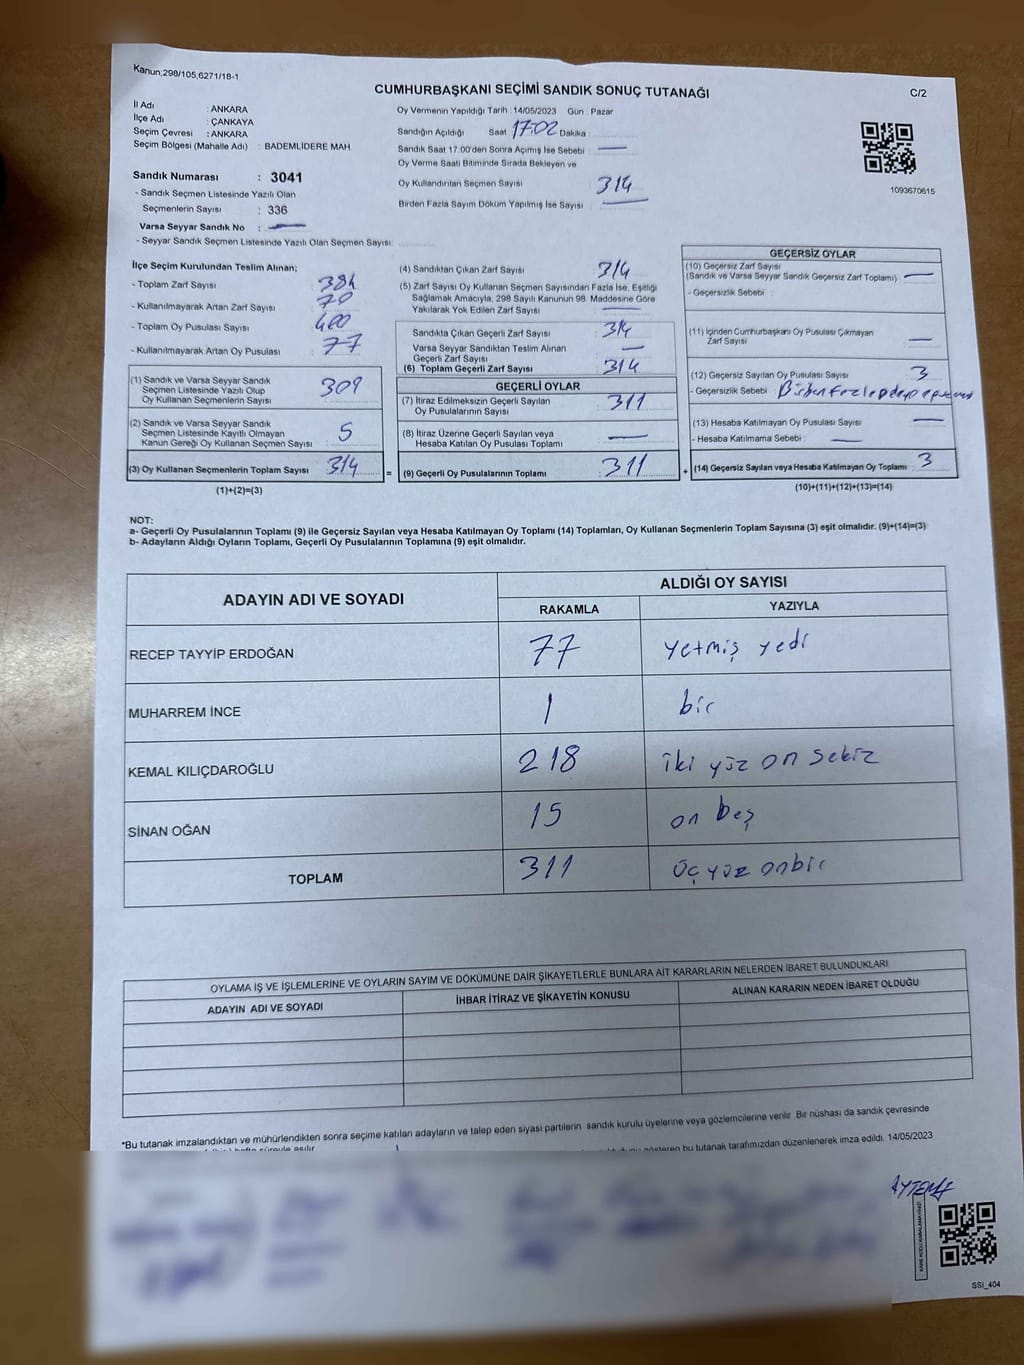 Kanun;298/105,6271/18-1
CUMHURBAŞKANI SEÇİMİ SANDIK SONUÇ TUTANAĞI
C/2
İl Adı : ANKARA
İlçe Adı : ÇANKAYA
Seçim Çevresi : ANKARA
Seçim Bölgesi (Mahalle Adı) : BADEMLİDERE MAH.
Sandık Numarası : 3041
- Sandık Seçmen Listesinde Yazılı Olan
Seçmenlerin Sayısı : 336
Varsa Seyyar Sandık No : —
- Seyyar Sandık Seçmen Listesinde Yazılı Olan Seçmen Sayısı:
Oy Vermenin Yapıldığı Tarih : 14/05/2023 Gün : Pazar
Sandığın Açıldığı Saat 17.02 Dakika :
Sandık Saat 17:00'den Sonra Açımış İse Sebebi : —
Oy Verme Saati Bitiminde Sırada Bekleyen ve
Oy Kullandırılan Seçmen Sayısı : 314
Birden Fazla Sayım Döküm Yapılmış İse Sayısı : —
1093670615
İlçe Seçim Kurulundan Teslim Alınan;
- Toplam Zarf Sayısı : 384
- Kullanılmayarak Artan Zarf Sayısı : 70
- Toplam Oy Pusulası Sayısı : 400
- Kullanılmayarak Artan Oy Pusulası : 77
(1) Sandık ve Varsa Seyyar Sandık
Seçmen Listesinde Yazılı Olup
Oy Kullanan Seçmenlerin Sayısı : 309
(2) Sandık ve Varsa Seyyar Sandık
Seçmen Listesinde Kayıtlı Olmayan
Kanun Gereği Oy Kullanan Seçmen Sayısı : 5
(3) Oy Kullanan Seçmenlerin Toplam Sayısı : 314
(1)+(2)=(3)
=
(4) Sandıktan Çıkan Zarf Sayısı : 314
(5) Zarf Sayısı Oy Kullanan Seçmen Sayısından Fazla İse, Eşitliği
Sağlamak Amacıyla, 298 Sayılı Kanunun 98. Maddesine Göre
Yakılarak Yok Edilen Zarf Sayısı : —
Sandıkta Çıkan Geçerli Zarf Sayısı : 314
Varsa Seyyar Sandıktan Teslim Alınan
Geçerli Zarf Sayısı : —
(6) Toplam Geçerli Zarf Sayısı : 314
GEÇERLİ OYLAR
(7) İtiraz Edilmeksizin Geçerli Sayılan
Oy Pusulalarının Sayısı : 311
(8) İtiraz Üzerine Geçerli Sayılan veya
Hesaba Katılan Oy Pusulası Toplamı : —
(9) Geçerli Oy Pusulalarının Toplamı : 311
+
GEÇERSİZ OYLAR
(10) Geçersiz Zarf Sayısı
(Sandık ve Varsa Seyyar Sandık Geçersiz Zarf Toplamı) : —
- Geçersizlik Sebebi :
(11) İçinden Cumhurbaşkanı Oy Pusulası Çıkmayan
Zarf Sayısı : —
(12) Geçersiz Sayılan Oy Pusulası Sayısı : 3
- Geçersizlik Sebebi :
(13) Hesaba Katılmayan Oy Pusulası Sayısı : —
- Hesaba Katılmama Sebebi : —
(14) Geçersiz Sayılan veya Hesaba Katılmayan Oy Toplamı : 3
(10)+(11)+(12)+(13)=(14)
NOT:
a- Geçerli Oy Pusulalarının Toplamı (9) ile Geçersiz Sayılan veya Hesaba Katılmayan Oy Toplamı (14) Toplamları, Oy Kullanan Seçmenlerin Toplam Sayısına (3) eşit olmalıdır. (9)+(14)=(3)
b- Adayların Aldığı Oyların Toplamı, Geçerli Oy Pusulalarının Toplamına (9) eşit olmalıdır.
ADAYIN ADI VE SOYADI
ALDIĞI OY SAYISI
RAKAMLA YAZIYLA
RECEP TAYYİP ERDOĞAN 77 yetmiş yedi
MUHARREM İNCE 1 bir
KEMAL KILIÇDAROĞLU 218 iki yüz on sekiz
SİNAN OĞAN 15 on beş
TOPLAM 311 üç yüz onbir
OYLAMA İŞ VE İŞLEMLERİNE VE OYLARIN SAYIM VE DÖKÜMÜNE DAİR ŞİKAYETLERLE BUNLARA AİT KARARLARIN NELERDEN İBARET BULUNDUKLARI
ADAYIN ADI VE SOYADI İHBAR İTİRAZ VE ŞİKAYETİN KONUSU ALINAN KARARIN NEDEN İBARET OLDUĞU
*Bu tutanak imzalandıktan ve mühürlendikten sonra seçime katılan adayların ve talep eden siyasi partilerin sandık kurulu üyelerine veya gözlemcilerine verilir. Bir nüshası da sandık çevresinde
gösteren bu tutanak tarafımızdan düzenlenerek imza edildi. 14/05/2023
SSI_404